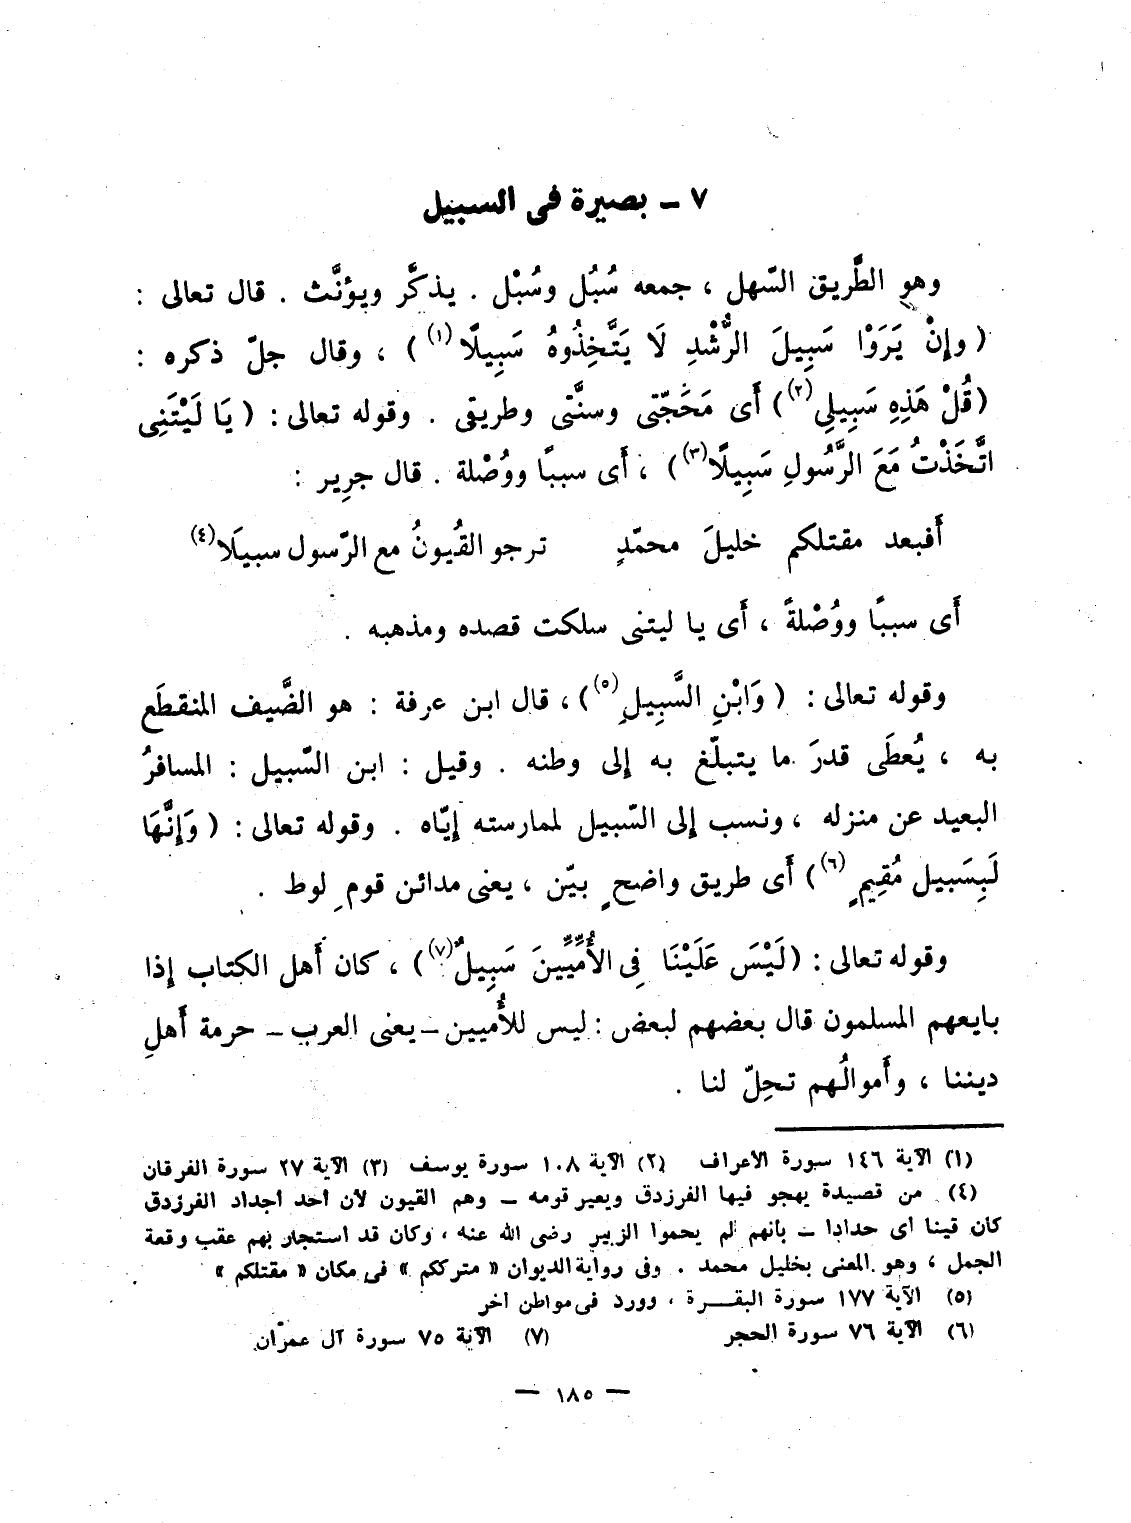 ٧ ـ بصيرة فى السبيل
وهو الطَّريق السّهل ، جمعه سُبُل وسُبْل . يذكَّر ويؤنَّث . قال تعالى :
( وإنْ يَرَوْا سَبِيلَ الرُّشْدِ لَا يَتَّخِذُوهُ سَبِيلًا(١) ) ، وقال جلّ ذكره :
(قُلْ هَذِهِ سَبِيلِى(٢)) أَى مَحَجّتى وسنَّتى وطريقى . وقوله تعالى : ( يَا لَيْتَنِى
اتَّخَذْتُ مَعَ الرَّسُولِ سَبِيلًا(٣) ) ، أَى سببًا ووُصْلة . قال جرِير :
أَفبعد مقتلكم خليلَ محمّدٍ ترجو القُيونُ مع الرّسول سبيلَا(٤)
أَى سببًا ووُصْلةً ، أَى يا ليتنى سلكت قصده ومذهبه .
وقوله تعالى : ( وَابْنِ السَّبِيلِ(٥) ) ، قال ابن عرفة : هو الضَّيف المنقطَع
به ، يُعطَى قدرَ ما يتبلّغ به إلى وطنه . وقيل : ابن السّبيل : المسافرُ
البعيد عن منزله ، ونسب إلى السّبيل لممارسته إيّاه . وقوله تعالى : ( وَإِنَّهَا
لَبِسَبيل مُقِيمٍ (٦) ) أَى طريق واضحٍ بيّن ، يعنى مدائن قومِ لوط .
وقوله تعالى : (لَيْسَ عَلَيْنَا فِى الأُمِّيِّينَ سَبِيلٌ(٧) ) ، كان أَهل الكتاب إذا
بايعهم المسلمون قال بعضهم لبعض : ليس للأُميين ـ يعنى العرب ـ حرمة أَهلِ
ديننا ، وأَموالُهم تحِلّ لنا .
(١) الآية ١٤٦ سورة الاعراف (٢) الآية ١٠٨ سورة يوسف (٣) الآية ٢٧ سورة الفرقان
(٤) من قصيدة يهجو فيها الفرزدق ويعير قومه ـ وهم القيون لأن أحد أجداد الفرزدق
كان قينا أى حدادا ـ بأنهم لم يحموا الزبير رضى الله عنه ، وكان قد استجار بهم عقب وقعة
الجمل ، وهو المعنى بخليل محمد . وفى رواية الديوان « متركم » فى مكان « مقتلكم »
(٥) الآية ١٧٧ سورة البقــرة ، وورد فى مواطن أخر
(٦) الآية ٧٦ سورة الحجر (٧) الآية ٧٥ سورة آل عمران
— ١٨٥ —